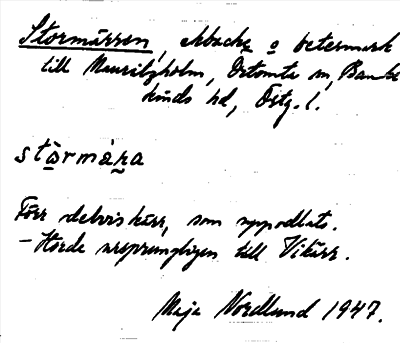 Stormässen, åbacke o betesmark
till Mauritzholm, Östomta sn, Banke
kinds hd, Östg. l.
stòrmása
Förr delvis kärr, som uppodlats.
- Hörde ursprungligen till Vikärr.
Maja Nordlund 1947.